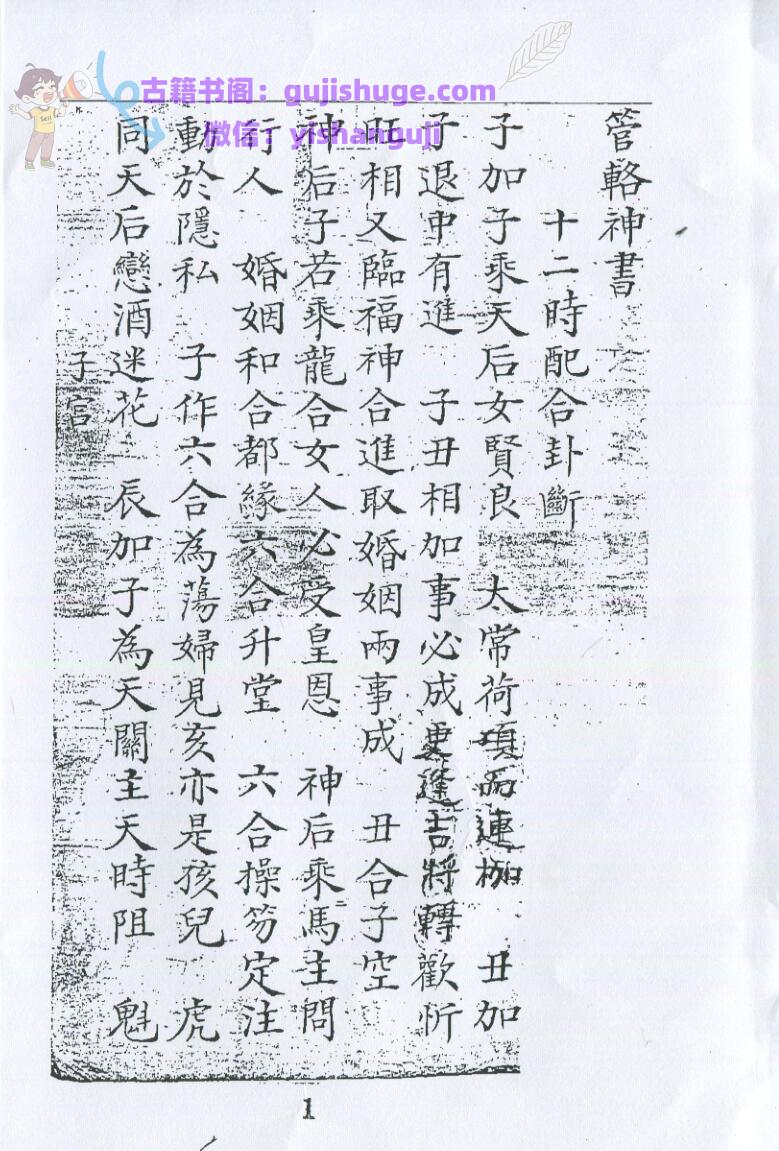 古籍书阁：gujishuge.com
微信：yishanguji
Sell
管輅神書
十二時配合卦斷
子加子乘天后女賢良　太常荷項而連枷　丑加
子退中有進　子丑相加事必成更逢吉將轉歡忻
旺相又臨福神合進取婚姻兩事成　丑合子空
神后子若乘龍合女人必受皇恩　神后乘馬主問
行人　婚姻和合都緣六合升堂　六合操笏定注
動於隱私　子作六合為蕩婦見亥亦是孩兒　虎
同天后戀酒迷花　辰加子為天關主天時阻　魁
子宮
1